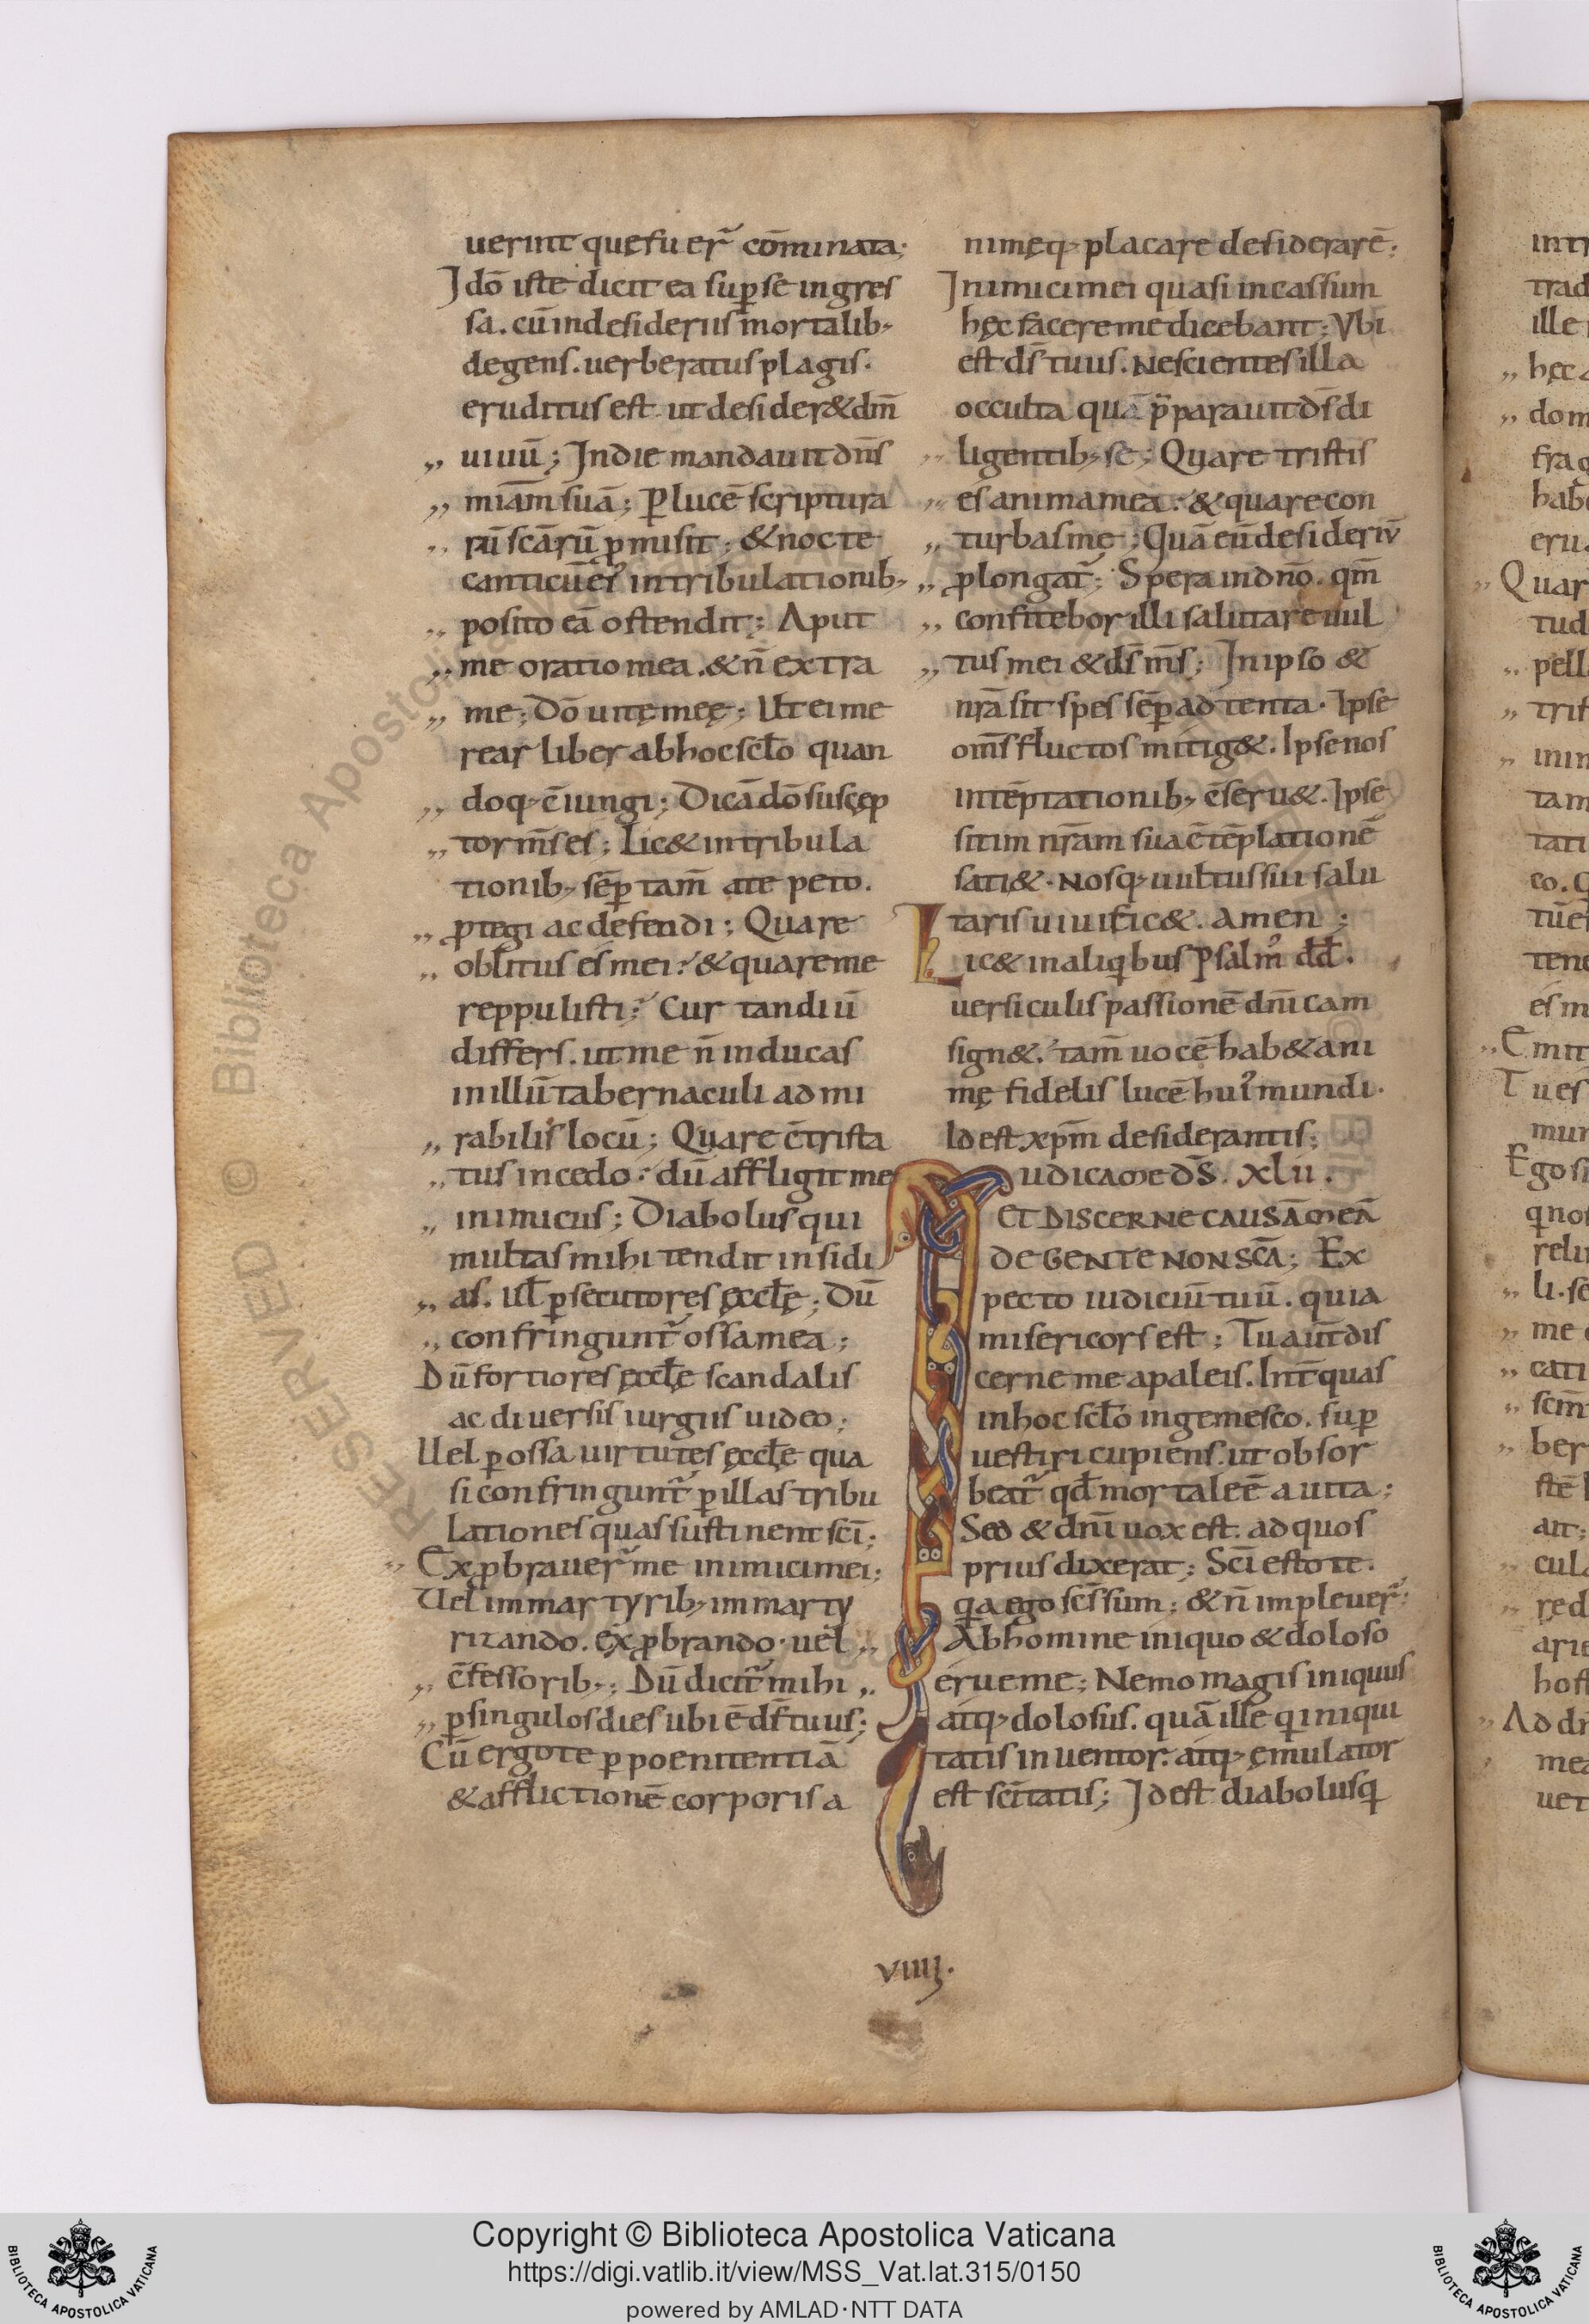 uerint quęfuer̃ cõminata;
Idõ iste dicit ea sup̱ se ingres
sa. cũ indesideriis mortalib;
degens. uerberatus plagis.
eruditus est ut desider& dm̃
„ uiuũ; Indie mandauit dñs
„ miãm suã; P̱ lucẽ scriptura
„ rũ scãrũ ꝓmisit; & nocte
canticũ eiꝰ intribulationib;
„ posito eã ostendit; Aput
„ me oratio mea. & ñ extra
„ me; Dõ uitę meę; Ut ei me
rear liber ab hoc scł̃o quan
doq; c̃iungi; Dicã dõ suscęp
„ tor m̃s es; Lic& intribula
tionib; sẽp̱ tam̃ ate peto.
„ ꝓtegi ac defendi; Quare
„ oblitus es mei? & quare me
reppulisti? Cur tandiũ
differs. ut me ñ inducas
in illũ tabernaculi admi
„ rabilis locũ; Quare c̃trista
„ tus incedo? dũ affligit me
„ inimicus; Diabolus qui
multas mihi tendit insidi
„ as. Uł p̱secutores ęccł̃ę; Dũ
„ confringunt̃ ossa mea;
Dũ fortiores ęccł̃ę scandalis
ac diuersis iurgiis uideo;
Uel p̱ ossa uirtutes ęccł̃ę qua
si confringunt̃ p̱ illas tribu
lationes quas sustinent scĩ;
„ Exꝓbrauer̃ me inimici mei;
Uel immartyrib; immarty
rizando. exꝓbrando. uel
„ c̃fessorib; Dũ dicit̃ mihi
„ p̱ singulos dies ubi ẽ ds̃ tuus;
Cũ ergo te p̱ poenitentiã
& afflictionẽ corporis a
nimęq; placare desiderarẽ;
Inimici mei quasi incassum
hęc facere me dicebant; Vbi
est ds̃ tuus. Nescientes illa
occulta quã p̃parauit ds̃ di
„ ligentib; se; Quare tristis
„ es anima mea? & quare con
„ turbas me; Quã eũ desideriũ
„ ꝓlongat̃; Spera indño. qm̃
„ confitebor illi salutare uul
„ tus mei & ds̃ m̃s; In ipso &
nr̃a sit spes sẽp̱ adtenta. Ipse
om̃s fluctos mitig&. Ipse nos
intẽptationib; c̃seru&. Ipse
sitim nr̃am sua c̃tẽplationẽ
sati&. Nosq; uultus sui salu
taris uiuific&. amen;
Lic& in aliqibus psalm̊ dd̃.
uersiculis passionẽ dñicam
sign&. tam̃ uocẽ hab& ani
mę fidelis lucẽ huiꝰ mundi.
Id est xp̃m desiderantis;
IUDICA ME DS̃. XLII.
ET DISCERNE CAUSÃ MEÃ
DE GENTE NON SCÃ; Ex
pecto iudiciũ tuũ. quia
misericors est; Tu aut̃ dis
cerne me apaleis. Int̃ quas
in hoc scł̃o ingemesco. sup̱
uestiri cupiens. ut obsor
beat̃ qđ mortale ẽ a uita;
Sed & dñi uox est. ad quos
prius dixerat; Scĩ estote.
qa ego scs̃ sum; & ñ impleuer̃;
„ Ab homine iniquo & doloso
„ erue me; Nemo magis iniquus
atq; dolosus. quã ille qi niqui
tatis inuentor. atq; ęmulator
est scĩtatis; Id est diabolus q
viiij.
intr
trad
ille
„ hęc
„ dom
fra
hab
eru
„ Quar
tud
„ pell
„ trif
„ inin
tam
tati
co.
tũ
tene
es m
„ Emit
Tu es
mur
Ego s
qnos
reli
„ li. se
„ me
„ cati
„ scm̃
„ ber
stẽ
ait;
„ cula
„ red
arie
host
„ Ad dñ
mea
uet
RESERVED © Biblioteca Apostolica Vaticana
Copyright © Biblioteca Apostolica Vaticana
https://digi.vatlib.it/view/MSS_Vat.lat.315/0150
powered by AMLAD·NTT DATA
BIBLIOTECA APOSTOLICA VATICANA
BIBLIOTECA APOSTOLICA VATICANA